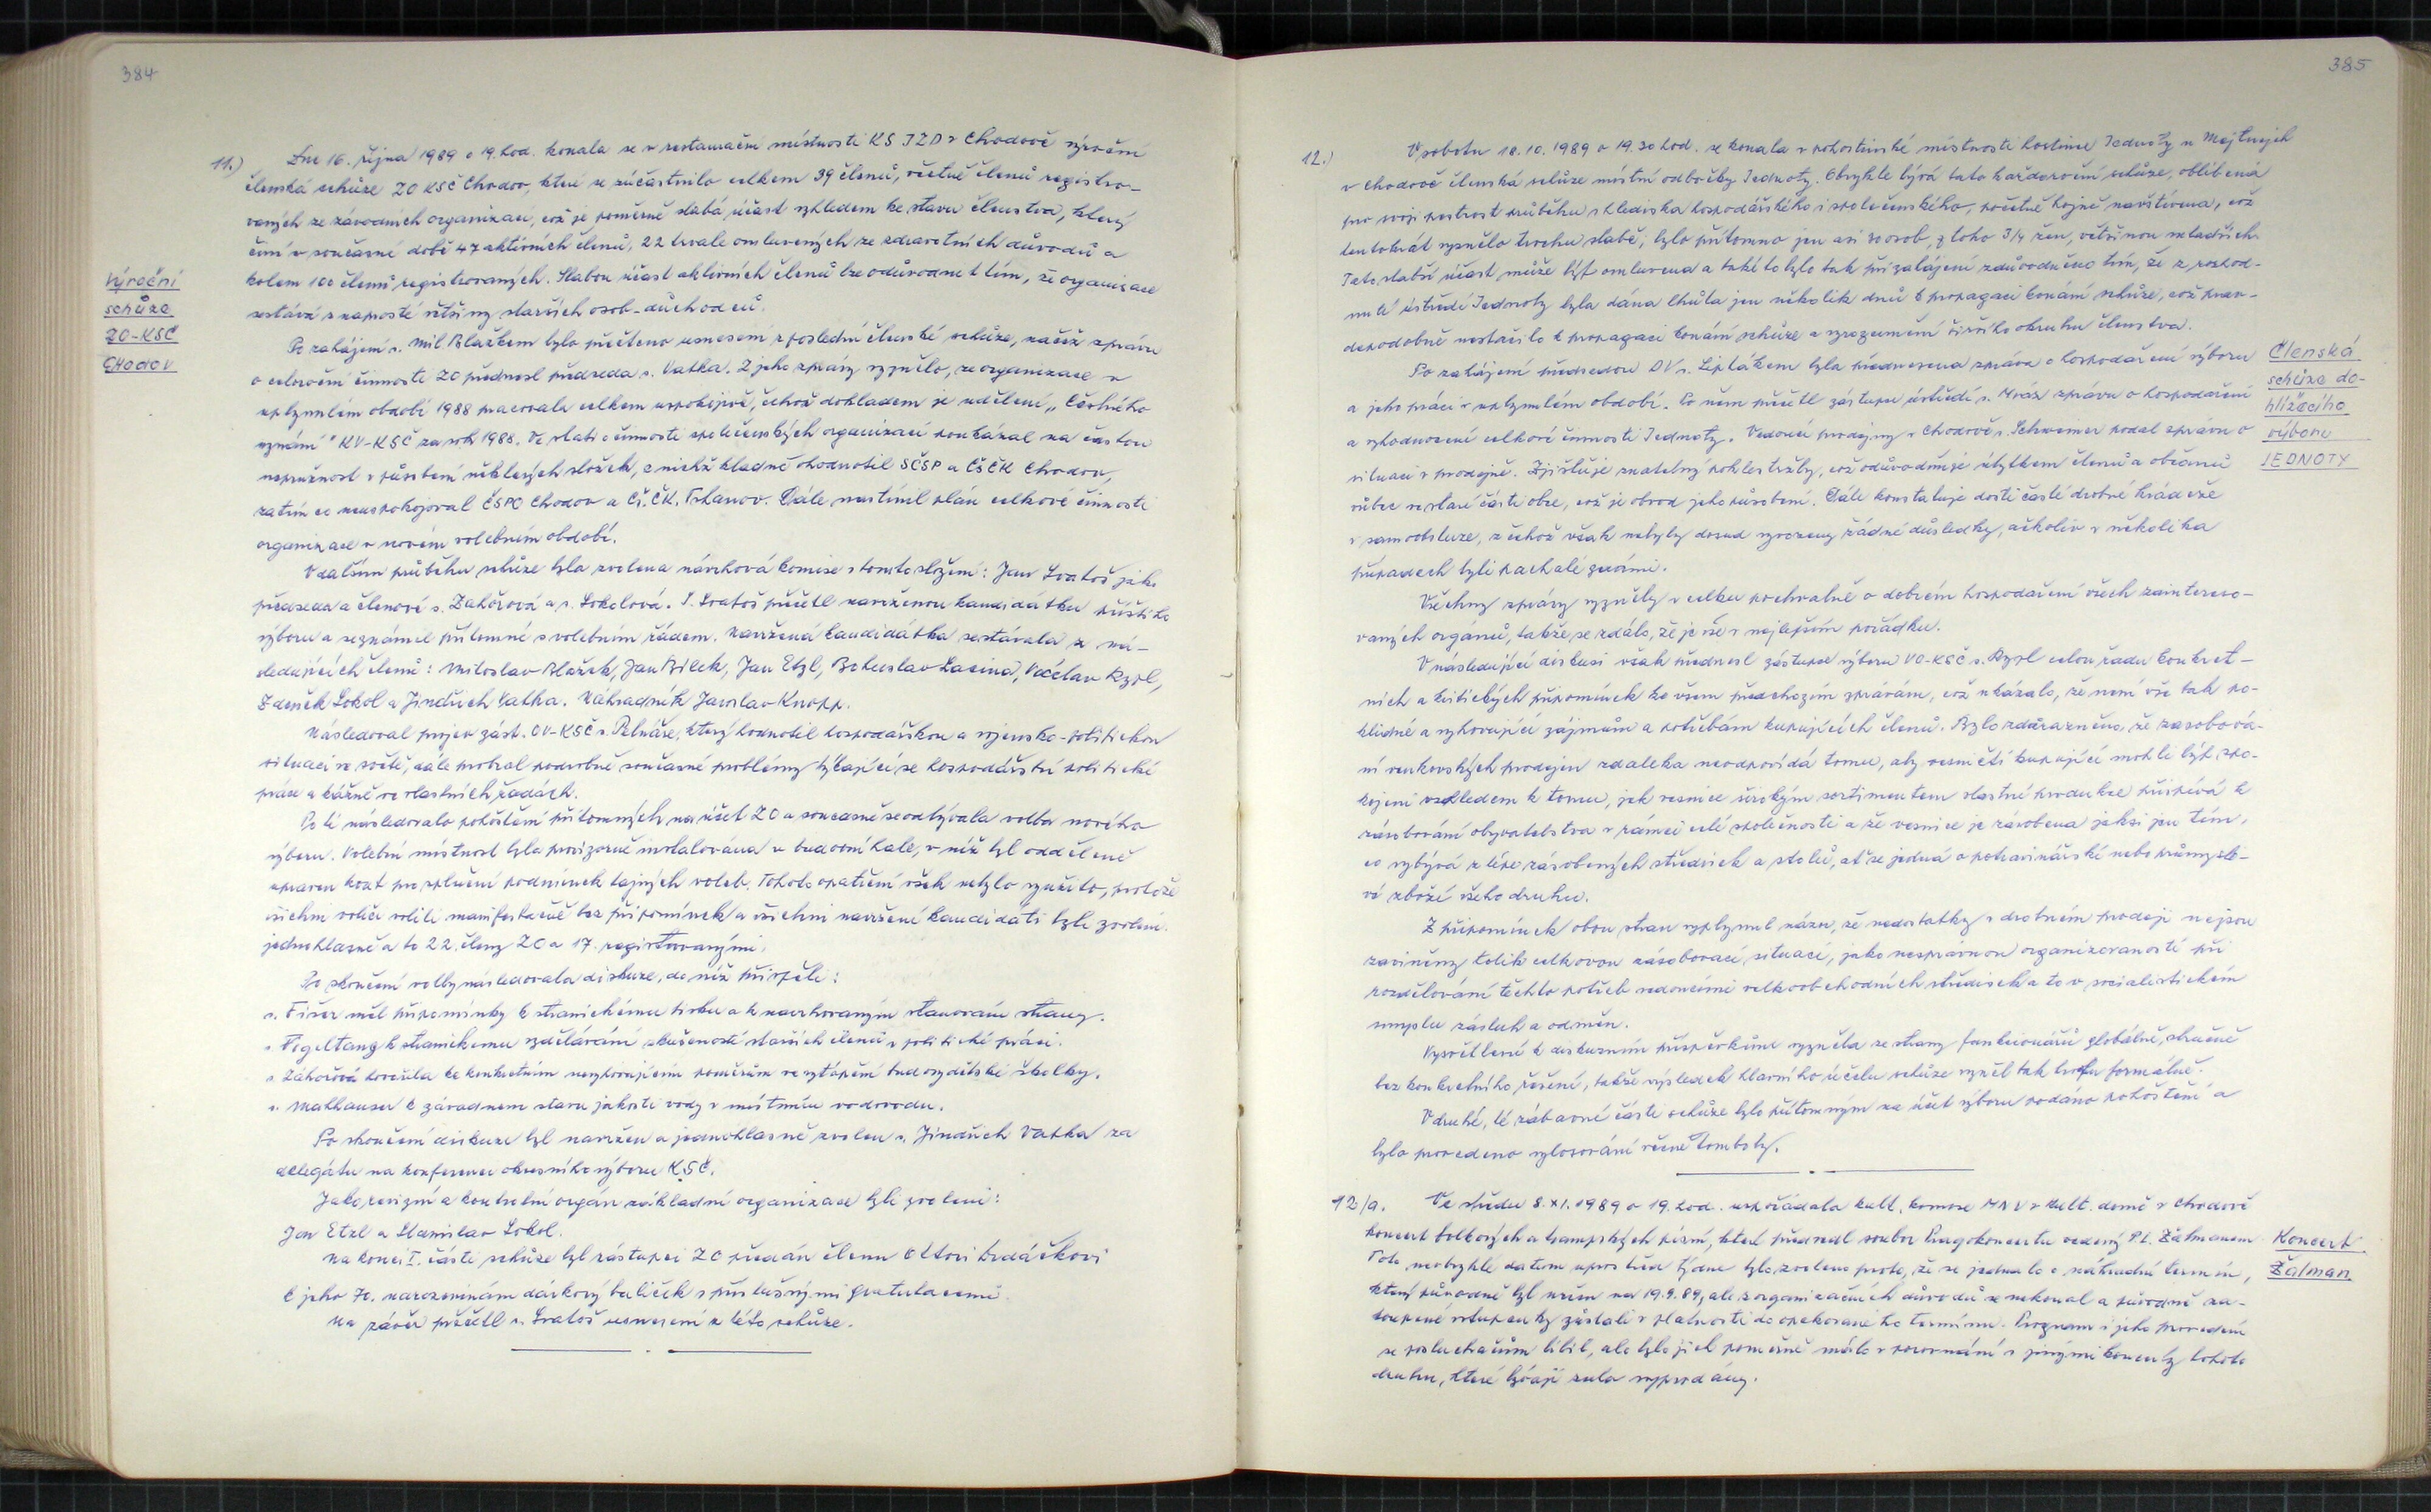 384
11.) Dne 16. října 1989 o 19. hod. konala se v restaurační místnosti KS JZD v Chodově výroční
členská schůze ZO KSČ Chodov, které se zúčastnilo celkem 39 členů, včetně členů registro-
vaných ze závodních organizací, což je poměrně slabá účast vzhledem ke stavu členstva, který
činí v současné době 47 aktivních členů, 22 trvale omluvených ze zdravotních důvodů a
kolem 100 členů registrovaných. Slabou účast aktivních členů lze odůvodnit tím, že organizace
sestává z naprosté většiny starších osob - důchodců.
Výroční
schůze
ZO-KSČ
CHodov
Po zahájení s. Mil Blažkem bylo přečteno usnesení z poslední členské schůze, načež zprávu
o celoroční činnosti ZO přednesl předseda s. Vatka. Z jeho zprávy vyznělo, že organizace v
uplynulém období 1988 pracovala celkem uspokojivě, čehož dokladem je udělení „Čestného
uznání" KV-KSČ za rok 1988. Ve stati o činnosti společenských organizací poukázal na častou
nepružnost v působení některých složek, z nichž kladně ohodnotil SČSP a ČSČK Chodov,
zatím co neuspokojoval ČSPO Chodov a Čs.ČK. Trhanov. Dále nastínil plán celkové činnosti
organizace v novém volebním období.
V dalším průběhu schůze byla zvolena návrhová komise v tomto složení: Jan Svatoš jako
předseda a členové s. Záhořová a s. Sokolová. S. Svatoš přečetl navrženou kandidátku příštího
výboru a seznámil přítomné s volebním řádem. Navržená kandidátka sestávala z ná-
sledujících členů: Miloslav Blažek, Jan Bílek, Jan Etzl, Bohuslav Lacina, Václav Rypl,
Zdeněk Sokol a Jindřich Vatka. Náhradník Jaroslav Knopp.
Následoval projev zást. OV-KSČ s. Pelnáře, který hodnotil hospodářskou a vojensko-politickou
situaci ve světě, dále probral podrobně současné problémy týkající se hospodářství politické
práce a kázně ve vlastních řadách.
Po té následovalo pohoštění přítomných na účet ZO a současně se odbývala volba nového
výboru. Volební místnost byla provizorně instalována v budovní hale, v níž byl odděleně
upraven kout pro splnění podmínek tajných voleb. Tohoto opatření však nebylo využito, protože
všichni voliči volili manifestačně bez připomínek a všichni navržení kandidáti byli zvoleni.
jednohlasně a to 22. členy ZO a 17. registrovanými.
Po skončení volby následovala diskuze, do níž přispěli:
s. Fišer měl připomínky k stranickému tisku a k navrhovaným stanovám strany.
s. Figeltang k stranickému vzdělávání zkušeností starších členů v politické práci.
s. Záhořová hovořila ke konkretním nevyhovujícím poměrům ve vytápění budovy dětské školky.
s. Mathauser k závadnem stavu jakosti vody v místním vodovodu.
Po skončení diskuze byl navržen a jednohlasně zvolen s. Jindřich Vatka za
delegáta na konferenci okresního výboru KSČ.
Jako revizní a kontrolní orgán základní organizace byli zvoleni:
Jan Etzl a Stanislav Sokol.
Na konci I. části schůze byl zástupci ZO předán členu Ottovi Hrdáčkovi
k jeho 70. narozeninám dárkový balíček s příslušnými gratulacemi.
Na závěr přečetl s. Svatoš usnesení z této schůze.
385
12.) V sobotu 18.10.1989 o 19.30 hod. se konala v pohostinské místnosti hostince Jednoty u Mejtských
v Chodově členská schůze místní odbočky Jednoty. Obvykle bývá tato každoroční schůze, oblíbená
pro svoji pestrost průběhu z hlediska hospodářského i společenského, početně hojně navštívena, což
tentokrát vyznělo trochu slabě; bylo přítomno jen asi 30 osob, z toho 3/4 žen, většinou mladších.
Tato slabší účast může být omluvena a také to bylo tak při zahájení zdůvodněno tím, že z rozhod-
nutí ústředí Jednoty byla dána lhůta jen několik dnů k propagaci konání schůze, což prav-
děpodobně nestačilo k propagaci konání schůze a vyrozumění širšího okruhu členstva.
Členská
schůze do-
hlížecího
výboru
JEDNOTY
Po zahájení předsedou DV s. Liptákem byla přednesena zpráva o hospodaření výboru
a jeho práci v uplynulém období. Po něm přečetl zástupce ústředí s. Mráz zprávu o hospodaření
a vyhodnocení celkové činnosti Jednoty. Vedoucí prodejny v Chodově s. Schwarmer podal zprávu o
situaci v prodejně. Zjišťuje znatelný pokles tržby, což odůvodňuje úbytkem členů a občanů
vůbec ve staré části obce, což je obvod jeho působení. Dále konstatuje dosti časté drobné krádeže
v samoobsluze, z čehož však nebyly dosud vyvozeny žádné důsledky, ačkoliv v několika
případech byli pachatelé známi.
Všechny zprávy vyzněly v celku pochvalně o dobrém hospodaření všech zaintereso-
vaných orgánů, takže se zdálo, že je vše v nejlepším pořádku.
V následující diskusi však přednesl zástupce výboru VO-KSČ s. Rypl celou řadu konkret-
ních a kritických připomínek ke všem předchozím zprávám, což ukázalo, že není vše tak po-
klidné a vyhovující zájmům a potřebám kupujících členů. Bylo zdůrazněno, že zasobová-
ní venkovských prodejen zdaleka neodpovídá tomu, aby vesničtí kupující mohli být spo-
kojeni vzhledem k tomu, jak vesnice širokým sortimentem vlastní produkce přispívá k
zásobování obyvatelstva v rámci celé společnosti a že vesnice je zásobena jaksi jen tím,
co vybývá z lépe zásobených středisek a stolů, ať se jedná o potravinářské nebo průmyslo-
vé zboží všeho druhu.
Z připomínek obou stran vyplynul názor, že nedostatky v drobném prodeji nejsou
zaviněny tolik celkovou zásobovací situací, jako nesprávnou organizovaností při
rozdělování těchto potřeb vedoucími velkoobchodních středisek a to v socialistickém
smyslu zásluh a odměn.
Vysvětlení k diskusním příspěvkům vyzněla ze strany funkcionářů globálně, stručně
bez konkretního řešení, takže výsledek hlavního účelu schůze vyzněl tak trochu formálně.
V druhé, té zábavné části schůze bylo přítomným na účet výboru podáno pohoštění a
bylo provedeno vylosování věcné tomboly.
12/a. Ve středu 8.XI.1989 o 19. hod. uspořádala kult. komise MNV v kult. domě v Chodově
koncert folkových a trampských písní, které přednesl soubor Pragokoncertu vedený P.L. Žalmanem
Toto neobvyklé datum uprostřed týdne bylo zvoleno proto, že se jednalo o náhradní termín,
který původně byl určen na 19.9.89, ale z organizačních důvodů se nekonal a původně za-
koupené vstupenky zůstali v platnosti do opakovaného termínu. Program i jeho provedení
se posluchačům líbil, ale bylo jich poměrně málo v porovnání s jinými koncerty tohoto
druhu, které bývají zcela vyprodány.
Koncert
Žalman